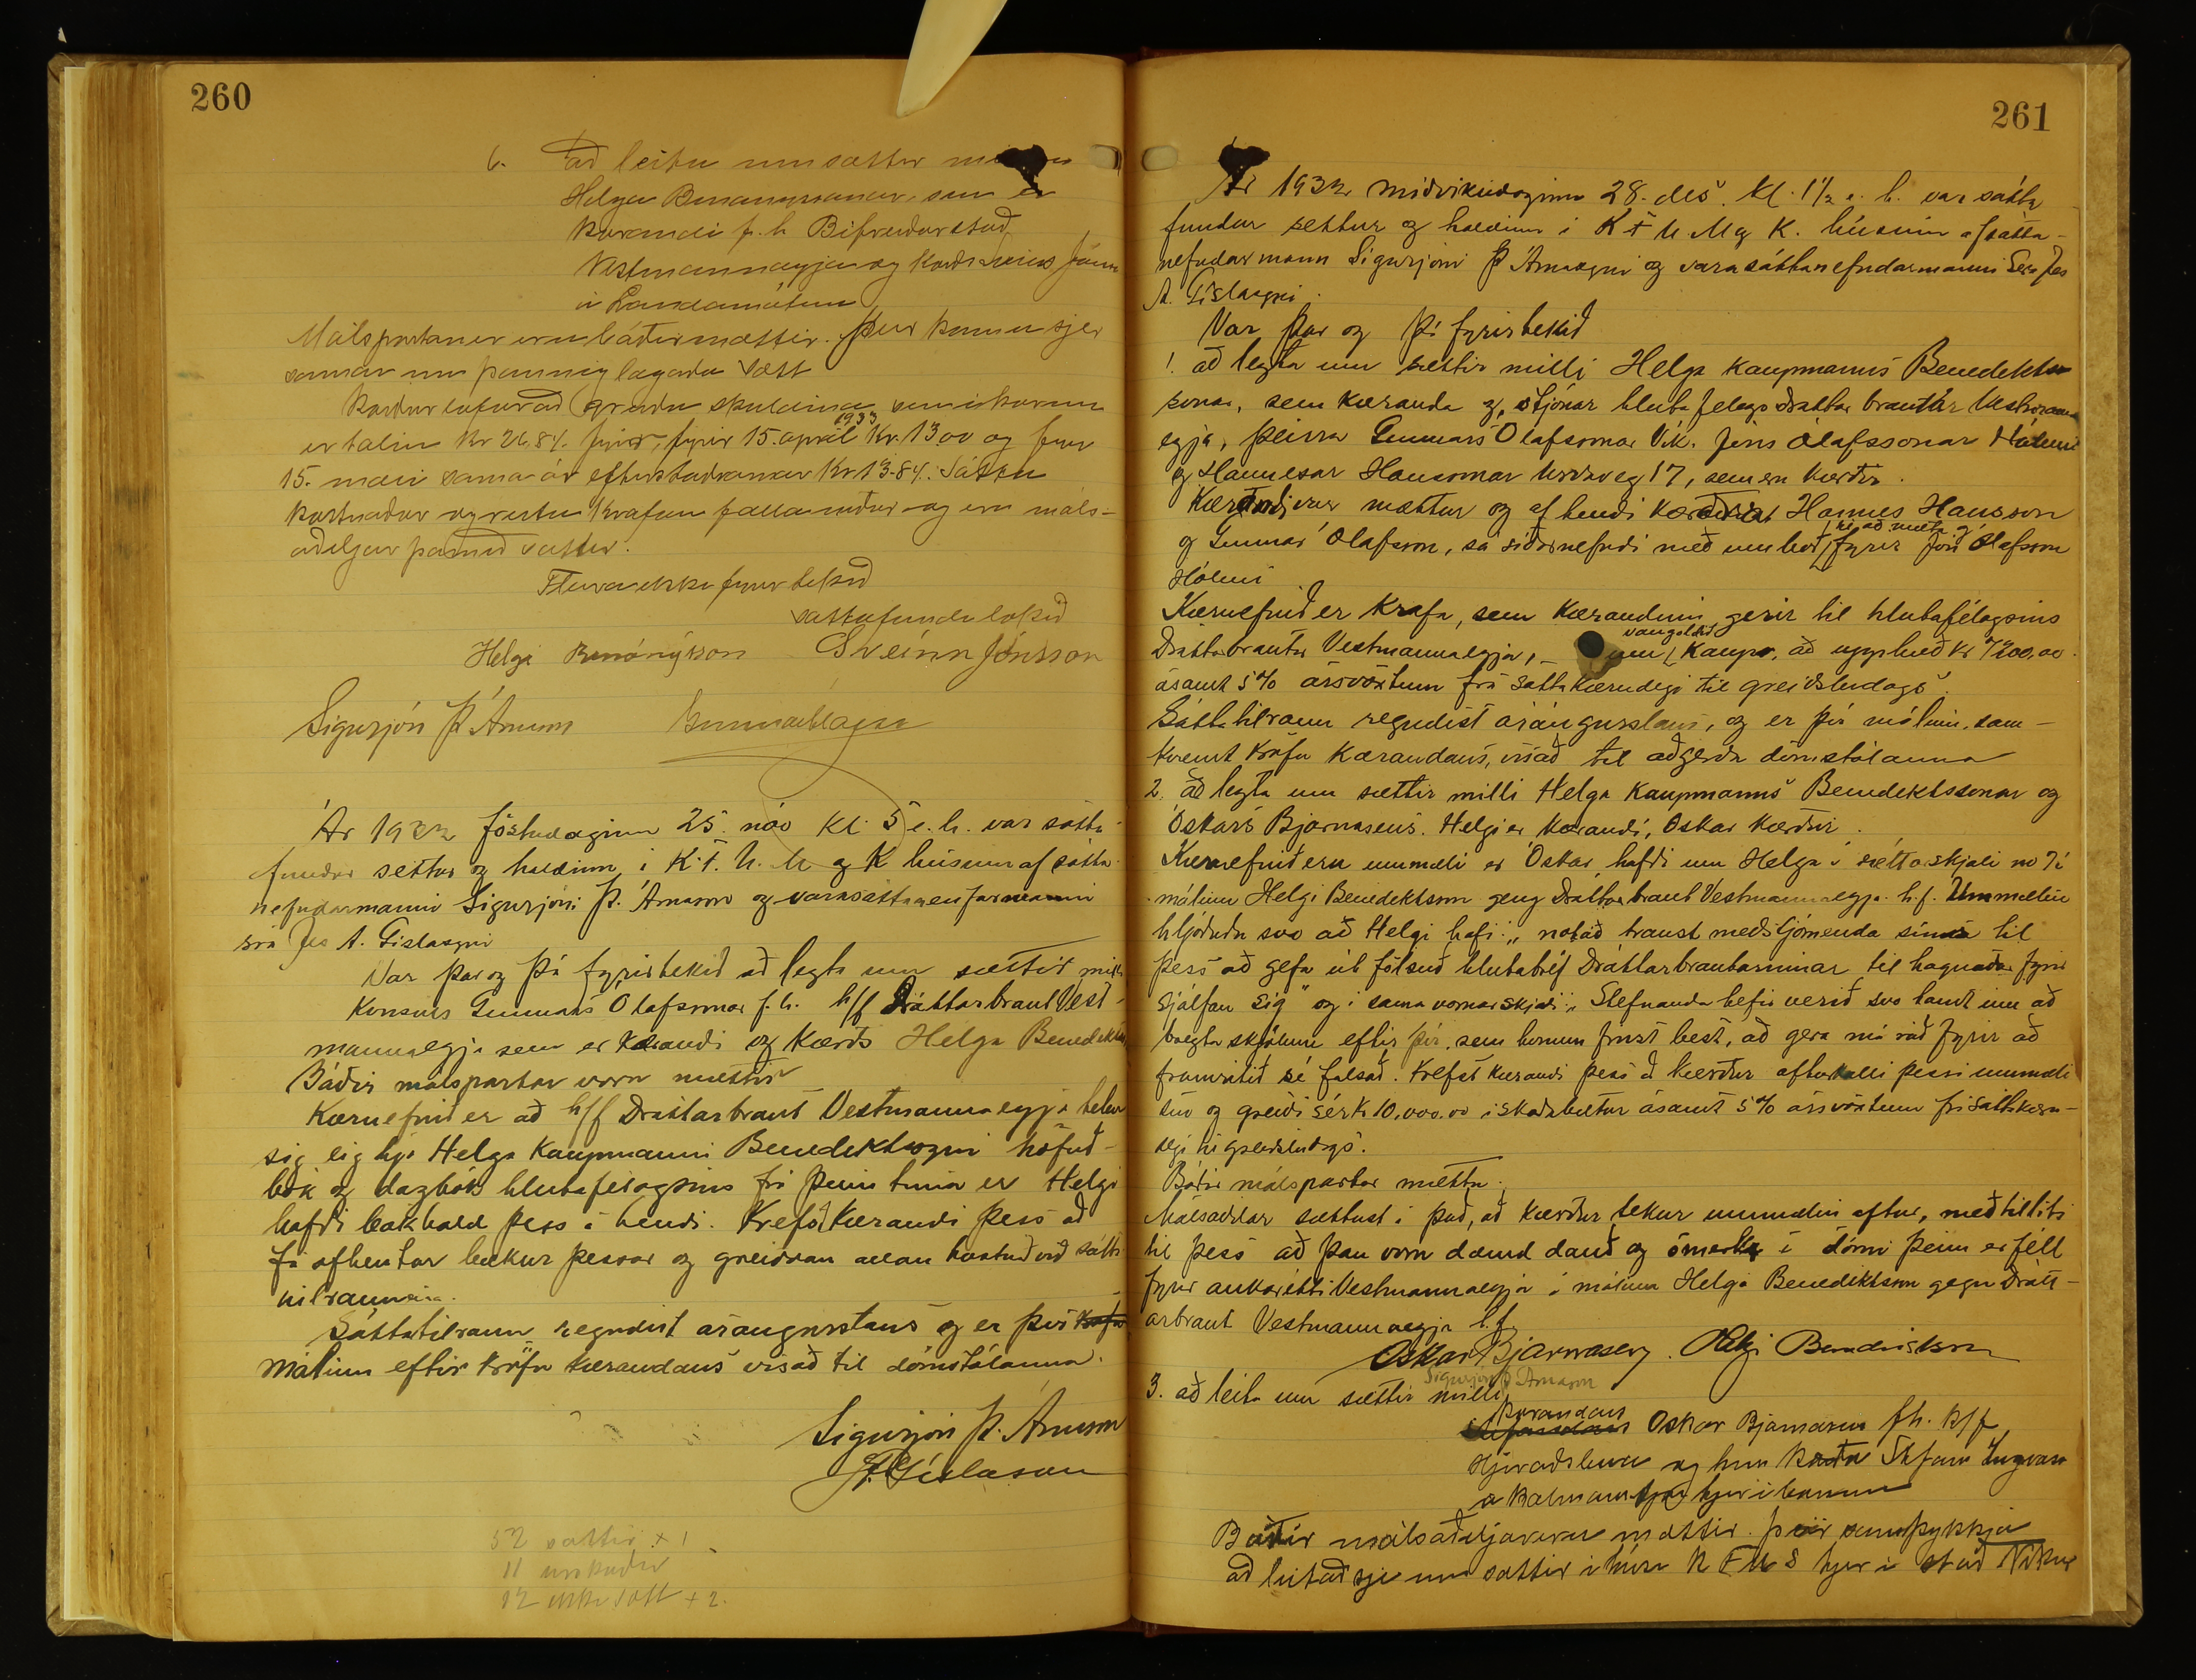 260
6. að leita um sættir
Helga Benónýssonar, sem er
kærandi f. h. Bifreiðarstöð
Vestmannaeyja og kærðs Sveins Jóns
á Landamótum
Málspartaner eru báðir mættir. Þeir koma sjer
saman um þannig lagaða sætt
Kærður lofar að greiða skuldina sem í kærunni
er talin Kr 26,84. fyrir 15. apríl 1933 Kr. 13 00 og fyrir
15. maí sama ár eftirstöðvarnar Kr 13.84. Sátta
kostnaður og vextir krafan falla niður og eru máls-
aðiljar þannig sáttir.
Fleira ekki fyrirtekið
sáttafundi lokið
Helgi Benónýsson Sveinn Jónsson
Sigurjón Þ. Árnason
Ár 1932 föstudaginn 25. nóv kl. 5 e. h. var sátta-
fundur settur og haldinn í K. F. U. M og K húsinu af sátta-
nefndarmanni Sigurjóni Þ. Árnasyni og varasáttanefndarmanni
síra Jes A. Gíslasyni
Var þar og þá fyrirtekið að leyta um sættir milli
Konsúls Gunnars Ólafssonar f. h. h/f Dráttarbraut Vest-
mannaeyja sem er kærandi og kærðs Helga Benedikts
Báðir málspartar voru mættir
Kæruefnið er að h/f Dráttarbraut Vestmannaeyja telur
sig eig hjá Helga Kaupmanni Benediktssyni höfuð-
bók og dagbók hlutafélagsins frá þeim tíma er Helgi
hafði bókhald þess á hendi. Krefst kærandi þess að
fá afhentar bækur þessar og greiddan allan kostnað við sátta-
tilraunina.
Sáttatilraun reyndist árangurslaus og er því
málinu eftir kröfu kærandans vísað til dómstólanna.
Sigurjón Þ. Árnason
J. A. Gíslason
52 sættir + 1
11 úrskurðir
12 ekki sátt + 2.
261
Ár 1932 miðvikudaginn 28. des. kl. 1½ e. h. var sátta
fundur settur og haldinn í K F U M og K. húsinu af sátta-
nefndarmann Sigurjóni Þ Árnasyni og varasáttanefndarmanni Séra Jes
A. Gíslasyni.
Var þar og þá fyrirtekið
1. að leyta um sættir milli Helga kaupmanns Benedikts
sonar, sem kæranda og stjórnar hlutafélags Dráttarbrautar Vestmanna
eyja, þeirra Gunnars Ólafssonar Vík. Jóns Ólafssonar Hólmi
og Hannesar Hanssonar Urðaveg 17, sem eru kærðir.
Kærandi var mættur og af hendi kærðra Hannes Hansson
og Gunnar Ólafsson, sá síðarnefndi með umboð til að mæta fyrir Jón Ólafsson
Hólmi
Kæruefnið er krafa, sem kærandinn gerir til hlutafélagsins
Dráttarbrautar Vestmannaeyja, - um vangoldið kaup, að upphæð kr 7200,00
ásamt 5% ársvöxtum frá sáttakærudegi til greiðsludags.
Sáttatilraun reyndist árangurslaus, og er því málinu, sam-
kvæmt kröfu kærandans, vísað til aðgerða dómstólanna
2. að leyta um sættir milli Helga Kaupmanns Benediktssonar og
Óskars Bjarnasens. Helgi er kærandi, Óskar kærður.
Kæruefnið eru ummæli er Óskar hafði um Helga í réttarskjali no 7 í
málinu Helgi Benediktsson gegn Dráttarbraut Vestmannaeyja h.f. Ummælin
hljóðuðu svo að Helgi hafi: „notað traust meðstjórnenda sinna til
þess að gefa út fölsuð hlutabréf Dráttarbrautarinnar til hagnaðar fyrir
sjálfan sig" og í sama varnarskjali: „Stefnanda hefir verið svo tamt um að
breyta skjölum eftir því, sem honum finst best, að gera má ráð fyrir að
framritið sé falsað. Krefst kærandi þess að kærður afturkalli þessi ummæli
sín og greiði sér kr 10,000.00 í skaðabætur ásamt 5% ársvöxtum frá sáttakæru-
degi til greiðsludags.
Báðir málspartar mættu.
Málsaðilar sættust í það, að kærður tekur ummælin aftur, með tilliti
til þess að þau voru dæmd dauð og ómerk í dómi þeim er féll
fyrir aukarétti Vestmannaeyja í málinu Helgi Benediktsson gegn Drátt-
arbraut Vestmannaeyja h.f.
Óskar Bjarnasen. Helgi Benediktsson
Sigurjón Þ Árnason
3. að leita um sættir milli
kærandans Óskar Bjarnasen fh. h/f
og hins kærða Stefán Ingvars
á Kalmanstjörn hjer í bænum
Báðir málsaðiljar eru mættir. Þeir samþykkja
að leitað sje um sættir í húsi K F U S hjer í stað